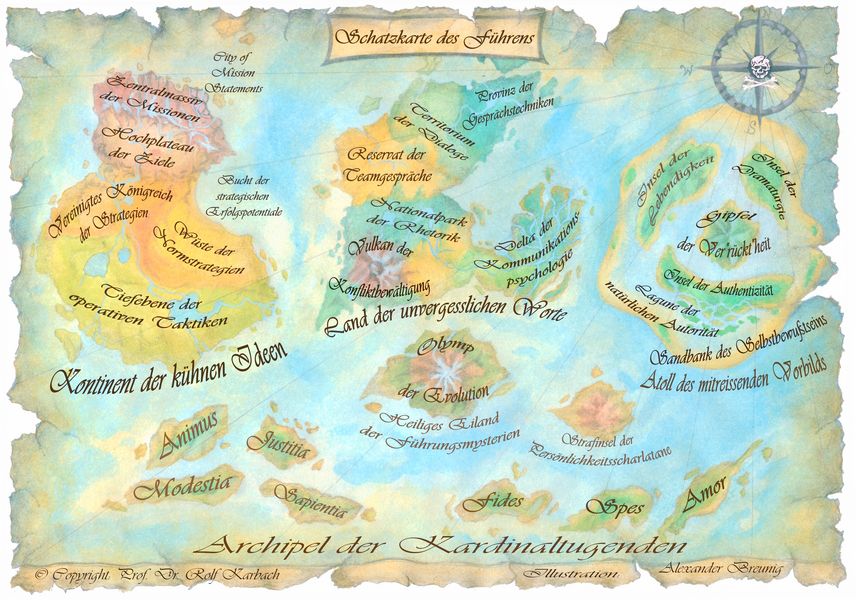 Schatzkarte des Führens
W
S
City of
Mission
Statements
Zentralmassiv
der Missionen
Hochplateau
der Ziele
Bucht der
strategischen
Erfolgspotentiale
Vereinigtes Königreich
der Strategien
Wüste der
Normstrategien
Tiefebene der
operativen Taktiken
Kontinent der kühnen Ideen
Provinz der
Gesprächstechniken
Territorium
der Dialoge
Reservat der
Teamgespräche
Nationalpark
der Rhetorik
Vulkan der
Konfliktbewältigung
Delta der
Kommunikations-
psychologie
Land der unvergesslichen Worte
Insel der
Lebendigkeit
Insel der
Dramaturgie
Gipfel
der Ver'rückt'heit
Insel der Authentizität
Lagune der
natürlichen Autorität
Sandbank des Selbstbewußtseins
Atoll des mitreissenden Vorbilds
Olymp
der Evolution
Heiliges Eiland
der Führungsmysterien
Strafinsel der
Persönlichkeitsscharlatane
Animus
Justitia
Modestia
Sapientia
Fides
Spes
Amor
Archipel der Kardinaltugenden
© Copyright: Prof. Dr. Rolf Karbach
Illustration: Alexander Breunig